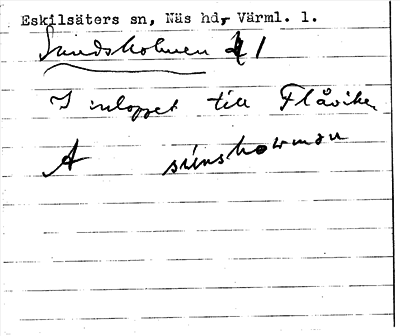 Eskilsäters sn, Näs hd, Värml. l.
Sundsholmen 1
I inloppet till Flåviken
A sünshowmän